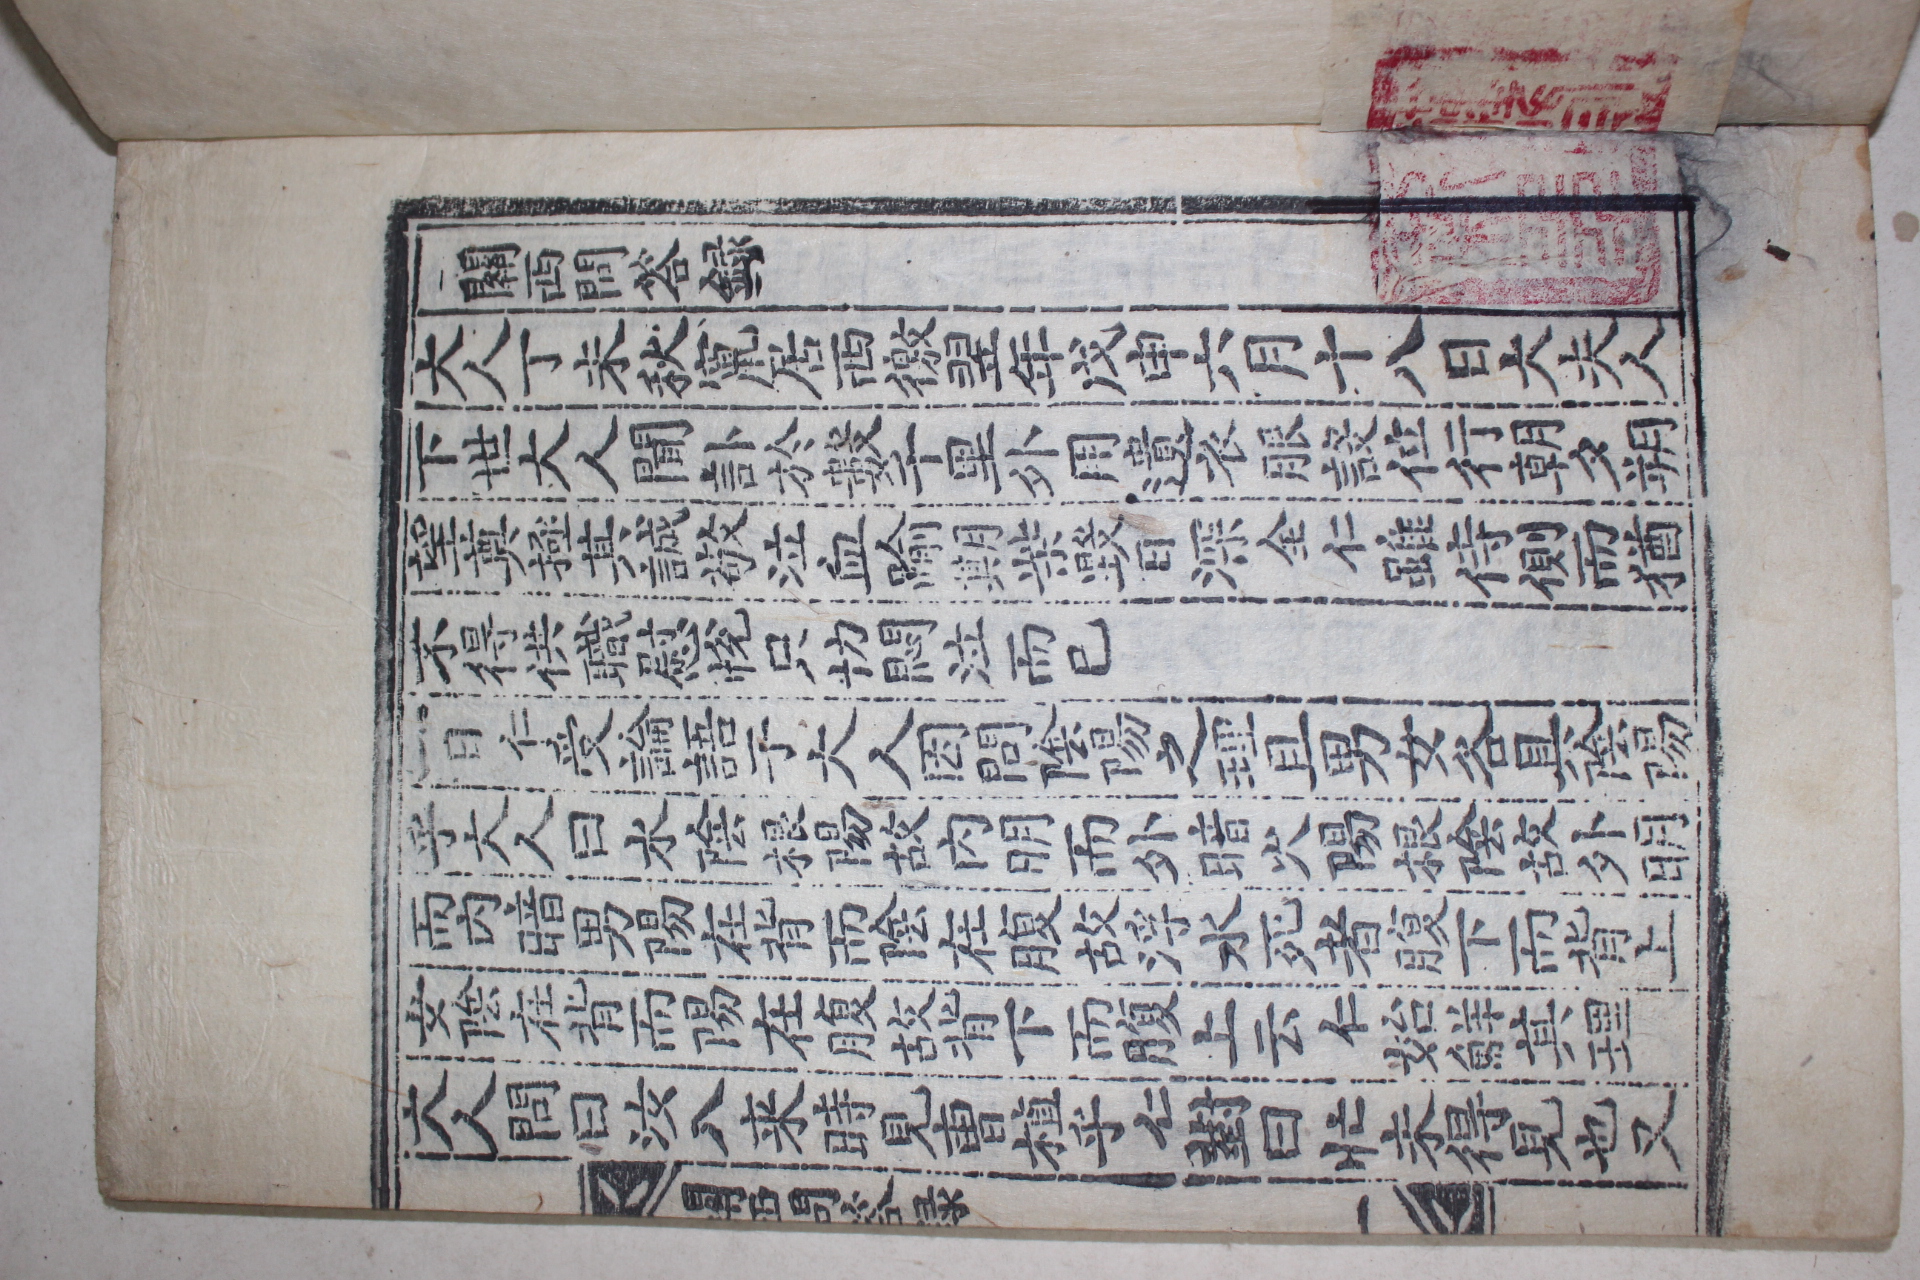 關西問答錄
大人丁未秋寓居西徼翌年戊申六月十八日大夫人
下世大人聞訃於數千里外用遠衣服設位行朝夕朔
望奠極其誠敬泣血齋期柴毀目深全仁雖侍側而猶
不得供職悅只切悶泣而已
一日仁受論語于大人因問陰陽之理且男女各具陰陽
乎大人曰水陰根陽故內明而外暗火陽根陰故外明
而內暗男陽在背而陰在腹故浮水死者腹下而背上
女陰在背而陽在腹故背下而腹上云仁始觧其理
大人問曰汝入來時見曺植乎仁對曰忙未得見也又
關西問答錄 一